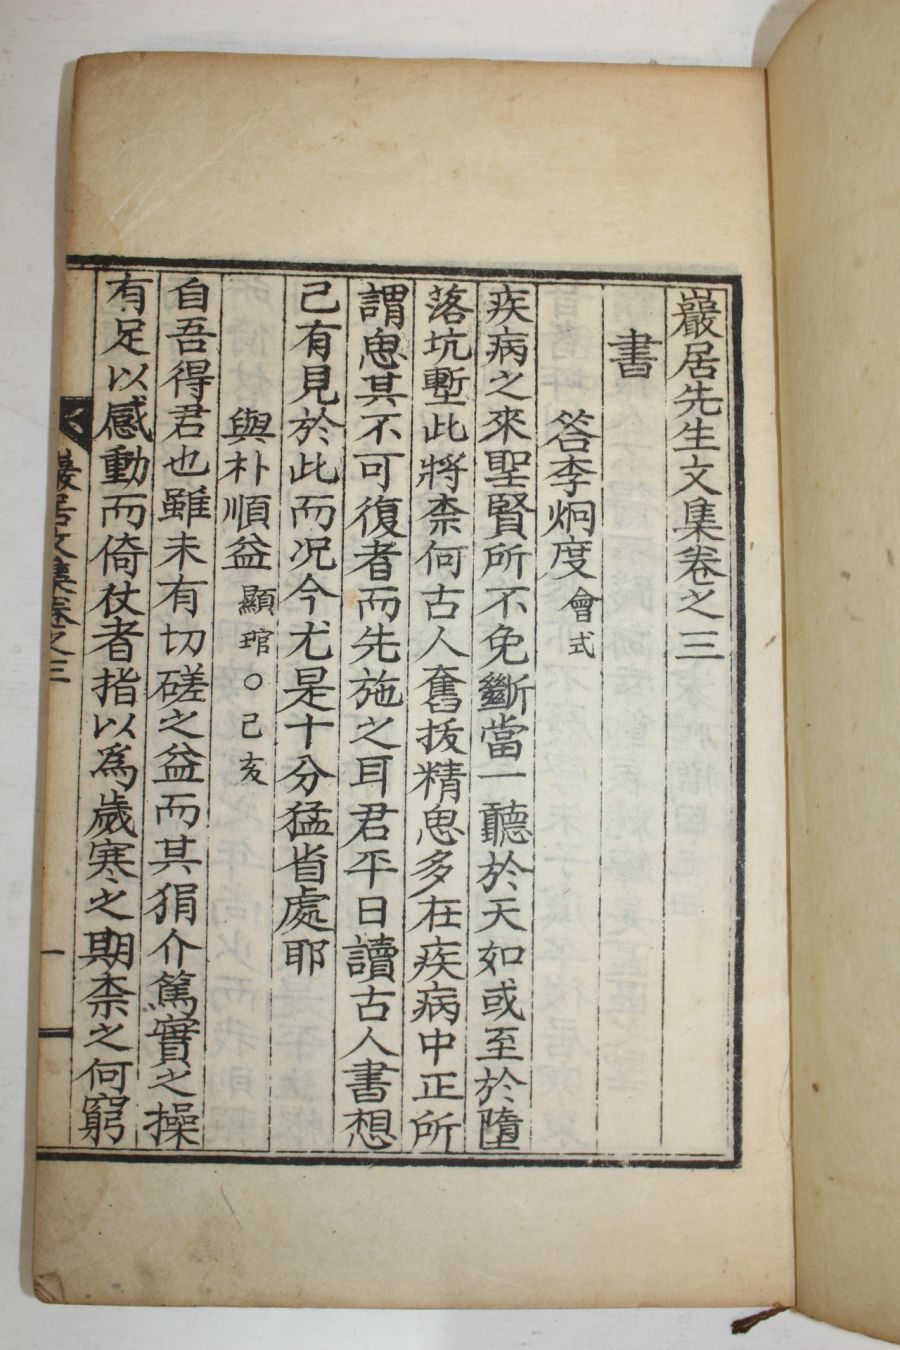 巖居先生文集卷之三
書
答李炯度 會式
疾病之來聖賢所不免斷當一聽於天如或至於墮
落坑塹此將柰何古人奮拔精思多在疾病中正所
謂思其不可復者而先施之耳君平日讀古人書想
已有見於此而况今尤是十分猛省處耶
與朴順益 顯琯○己亥
自吾得君也雖未有切磋之益而其狷介篤實之操
有足以感動而倚仗者指以爲歲寒之期柰之何窮
巖居文集卷之三
一